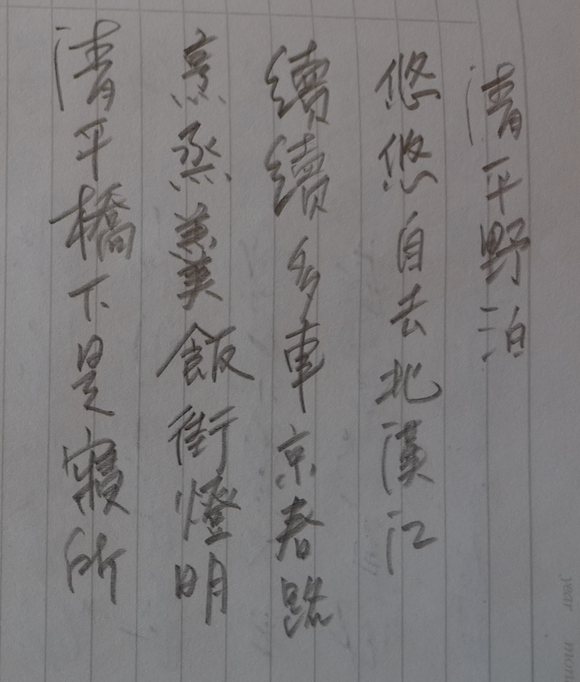 清平野泊
悠悠自去北漢江
續續多車京春路
烹烝美飯街燈明
清平橋下是寢所